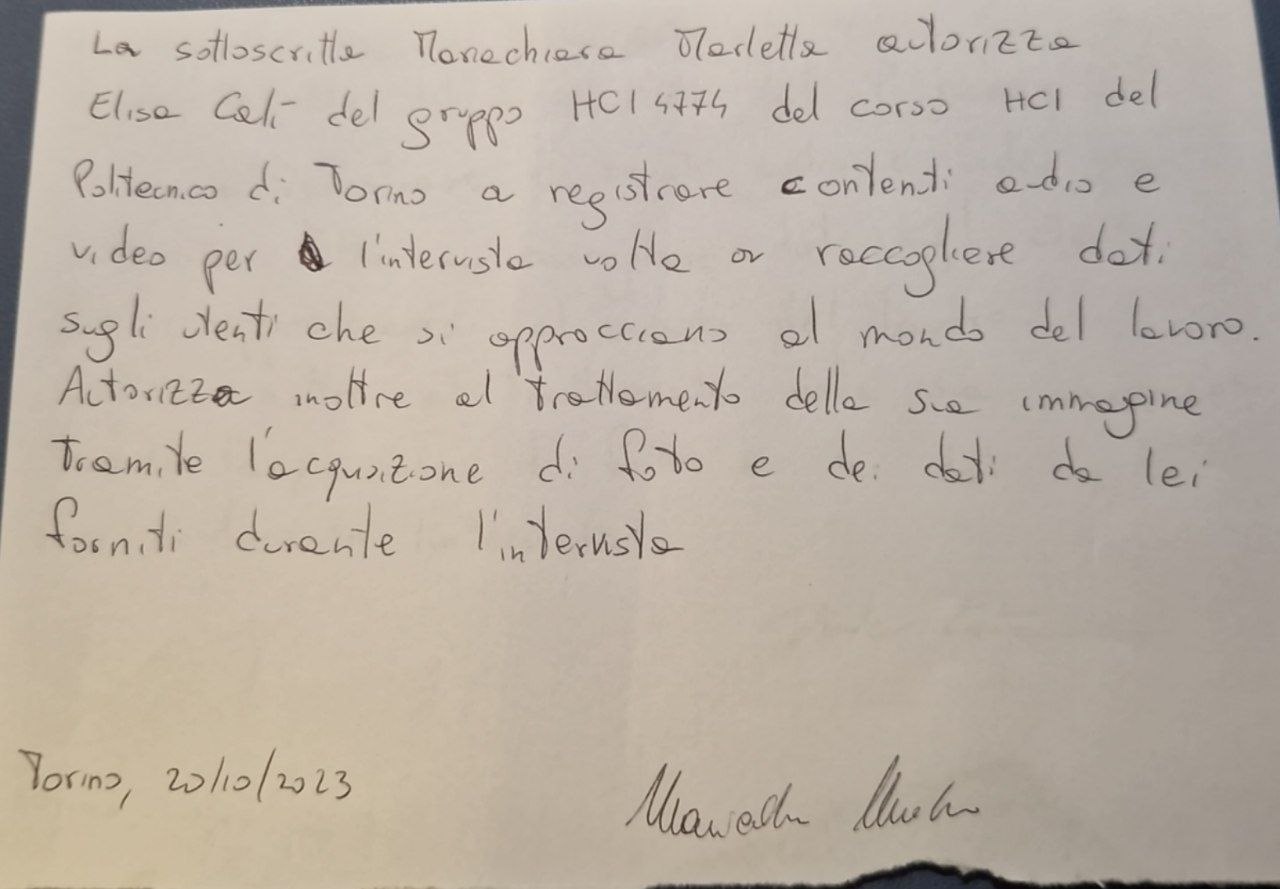 La sottoscritta Mariachiara Marletta autorizza
Elisa Calì del gruppo HCI 4774 del corso HCI del
Politecnico di Torino a registrare contenuti audio e
video per l'intervista volta a raccogliere dati
sugli utenti che si approcciano al mondo del lavoro.
Autorizza inoltre al trattamento della sua immagine
tramite l'acquisizione di foto e dei dati da lei
forniti durante l'intervista
Torino, 20/10/2023